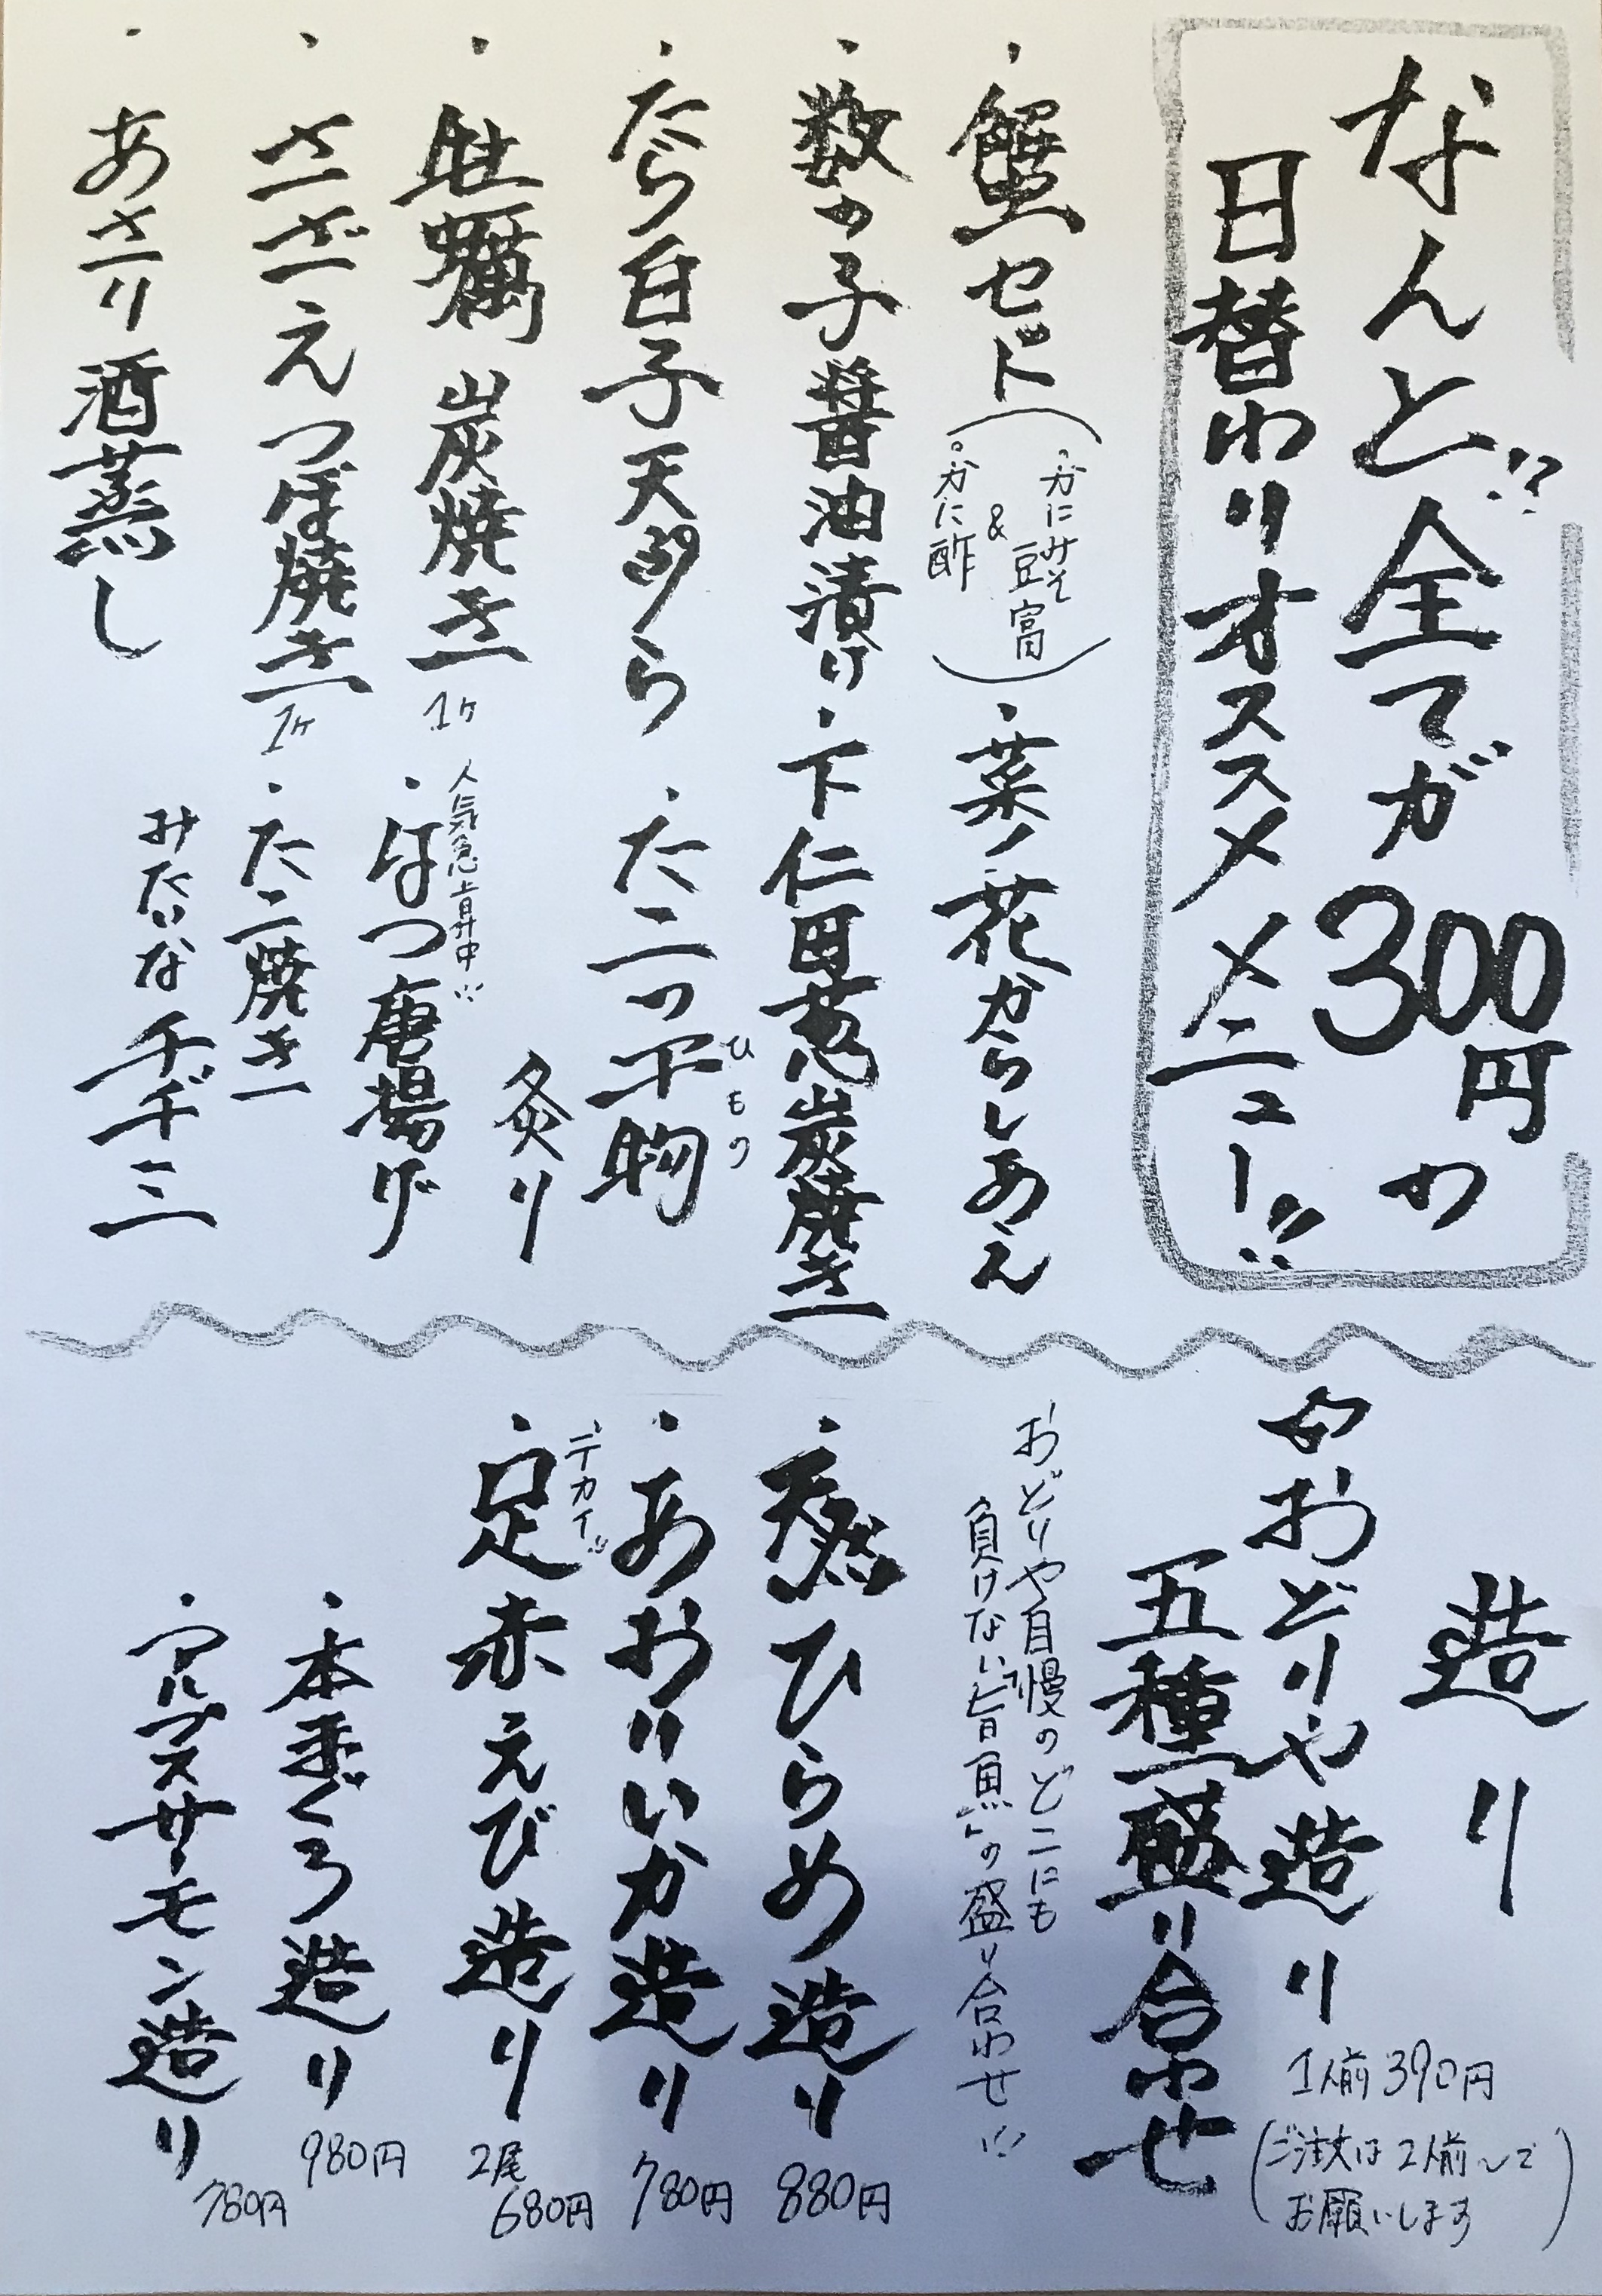 なんと!?全てが300円の
日替わりオススメメニュー!!
・蟹セット
・かにみそ豆富
&
・かに酢
・菜ノ花からしあえ
・数の子醤油漬け
・下仁田葱炭焼き
・たら白子天ぷら
・たこの干物
ひもの
炙り
・牡蠣 炭焼き 1ヶ
人気急上昇中!!
・はつ唐揚げ
・さざえつぼ焼き 1ヶ
・たこ焼き
みたいなチヂミ
・あさり酒蒸し
造り
おどりや造り
五種盛り合わせ
1人前390円
(ご注文は2人前〜で
お願いします)
おどりや自慢のどこにも
負けない「旨魚」の盛り合わせ!!
・天然ひらめ造り 880円
・あおりいか造り 780円
デカイ!!
・足赤えび造り 2尾
680円
・本まぐろ造り 980円
・アルプスサーモン造り 780円